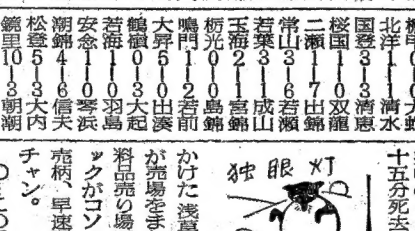 北洋1―1清水
国登3―3清恵
桜国1―0双龍
二瀬1―7出錦
常山3―6若瀬
若葉3―1成山
玉海2―1宮錦
栃光0―0島錦
鳴門1―2若前
大昇5―0出湊
鶴嶺3―3大起
若海1―0羽島
安念1―0琴浜
潮錦4―6信天
松登5―3大内
鏡里10―3朝潮
十五分死去
独眼灯
かけた 浅草
が売場をま
料品売り場
ックがコソ
売柄、早速
チャン。